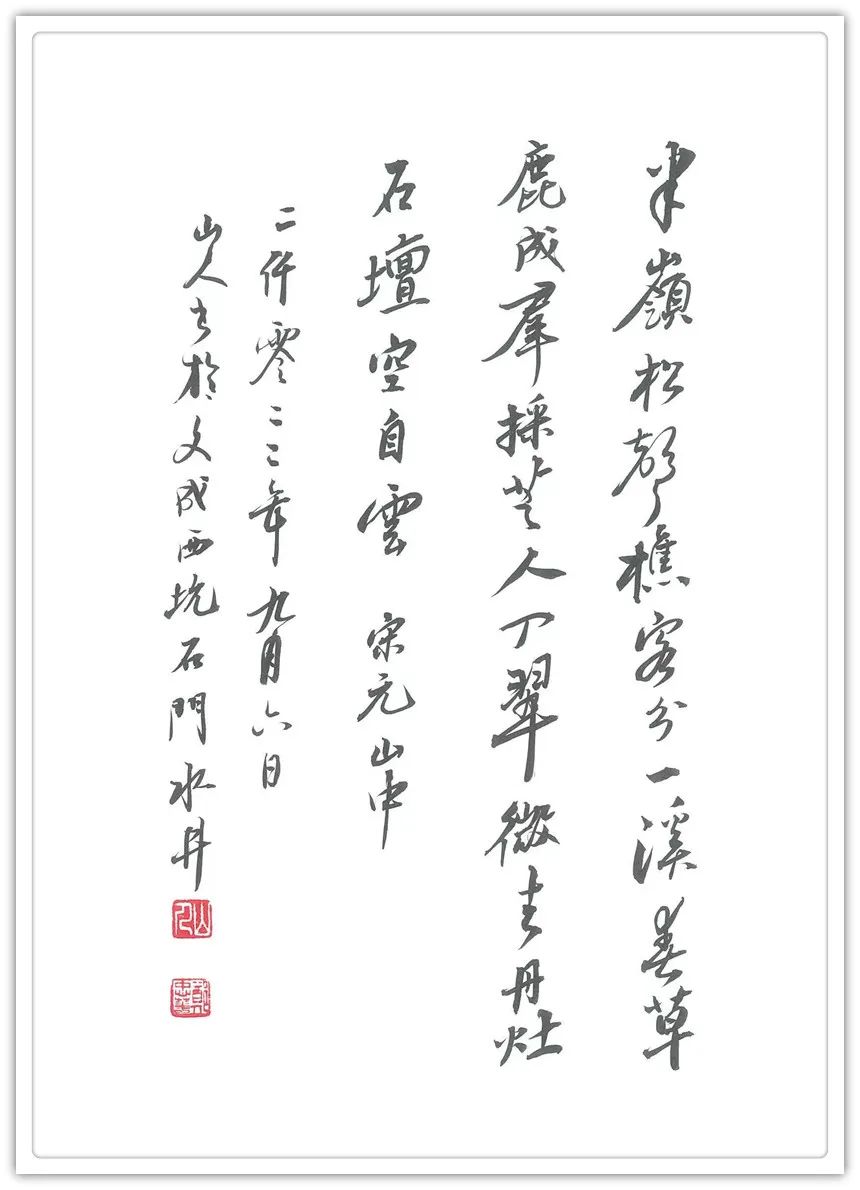 半嶺松聲樵客分一溪春草
鹿成羣採芝人下翠微去丹灶
石壇空自雲 宋元 山中
二仟零二二年九月六日
山人书於文成西坑石門水井
山人